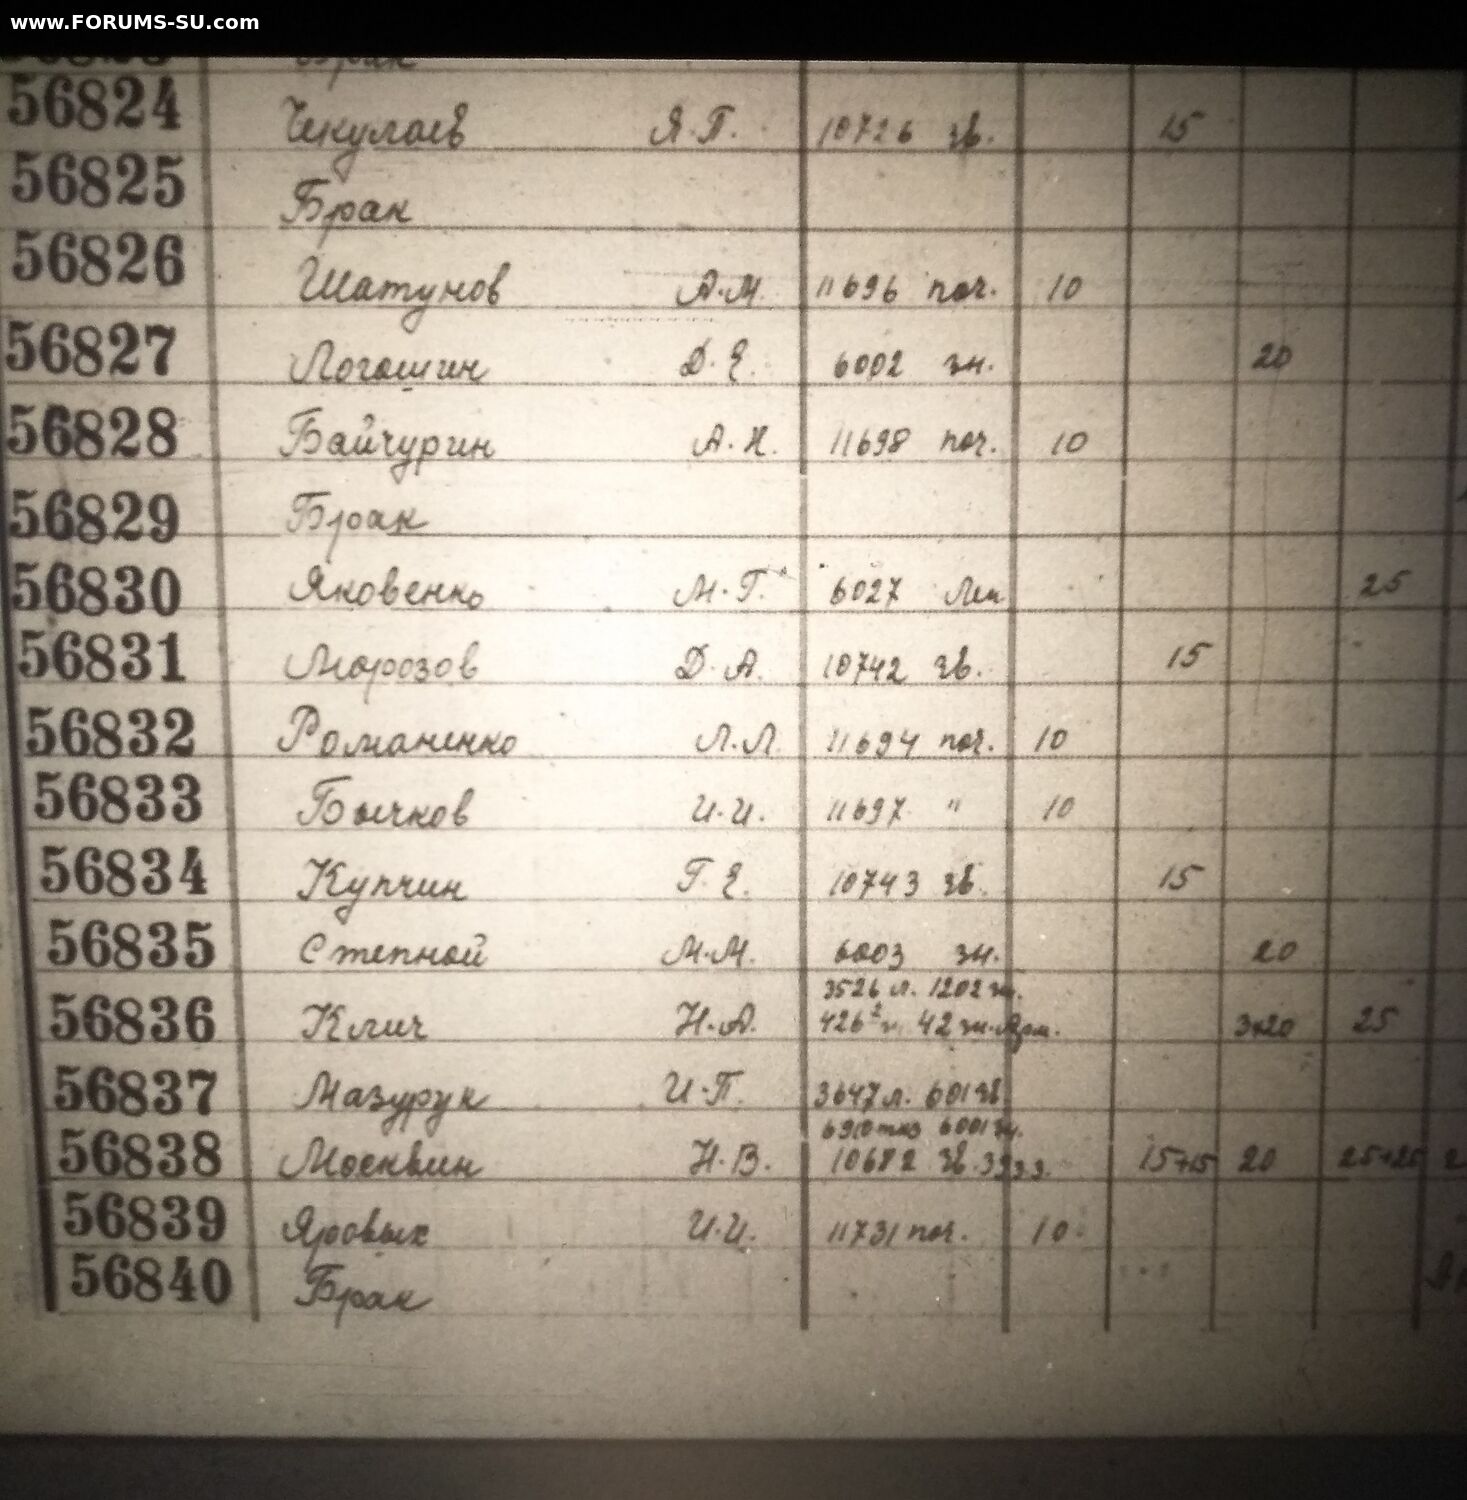 www.FORUMS-SU.com
56824 Чекулаев Я.П. 10726 зв. 15
56825 Брак
56826 Шатунов А.М. 11696 поч. 10
56827 Логашин Д.Е. 6002 зн. 20
56828 Байчурин А.Н. 11698 поч. 10
56829 Брак
56830 Яковенко М.Г. 6027 Лен 25
56831 Морозов Д.А. 10742 зв. 15
56832 Романенко Л.Л. 11694 поч. 10
56833 Бычков И.И. 11697 " 10
56834 Купчин Г.Е. 10743 зв. 15
56835 Степной М.М. 6003 зн. 20
3526 л. 1202 зн.
56836 Клич Н.А. 42 зн. 3х20 25
56837 Мазурук И.П. 3647 л. 601 зв.
6001 зн.
56838 Москвин Н.В. зв. 15+15 20 25+25
56839 Яровых И.И. 11731 поч. 10
56840 Брак